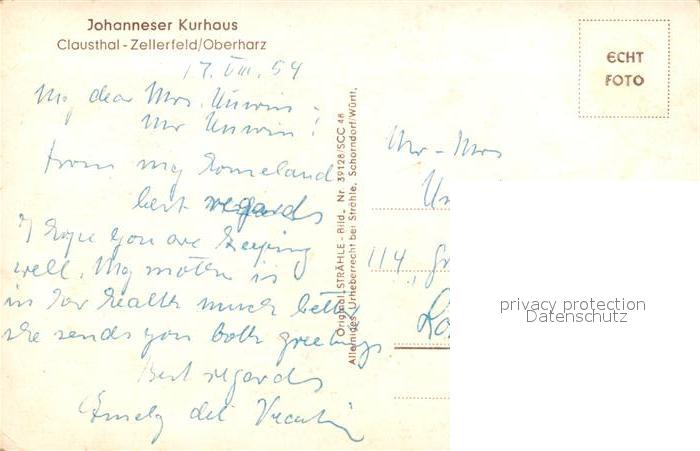 Johanneser Kurhaus
Clausthal-Zellerfeld/Oberharz
17. VIII. 54
My dear Mrs. Unwin -
Mr Unwin!
from my homeland
best regards
I hope you are keeping
well. My mother is
in her health much better
she sends you both greetings
Best regards
ECHT
FOTO
Original STRÄHLE-Bild, Nr. 39128/SCC 48
Alleiniges Urheberrecht bei Strähle, Schorndorf/Württ.
Mr - Mrs
Un
114
privacy protection
Datenschutz